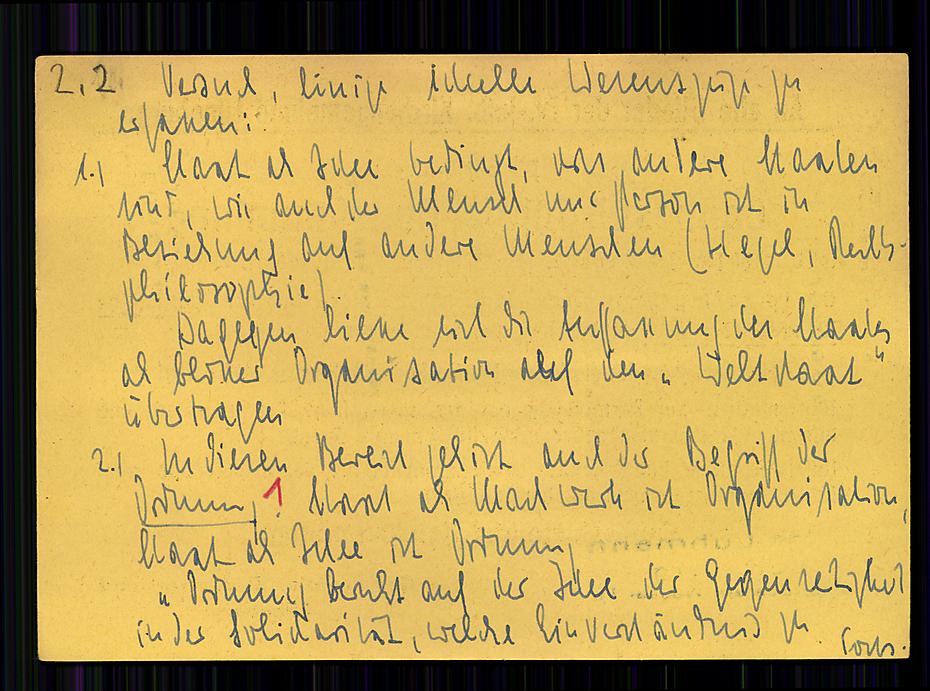 2,2 Versuch, einige ideelle Wesenszüge zu
erfassen:
1.) Staat als Idee bedingt, dass andere Staaten
sind, wie auch der Mensch nur Person ist in
Beziehung auf andere Menschen (Hegel, Rechts-
philosophie).
Dagegen liesse sich die Auffassung des Staates
als blosser Organisation auch den "Weltstaat"
übertragen
2.) In diesen Bereich gehört auch der Begriff der
Ordnung, 1 Staat als Machwerk ist Organisation,
Staat als Idee ist Ordnung
"Ordnung beruht auf der Idee der Gegenseitigkeit
in der Solidarität, welche Einverständnis zu
Forts.